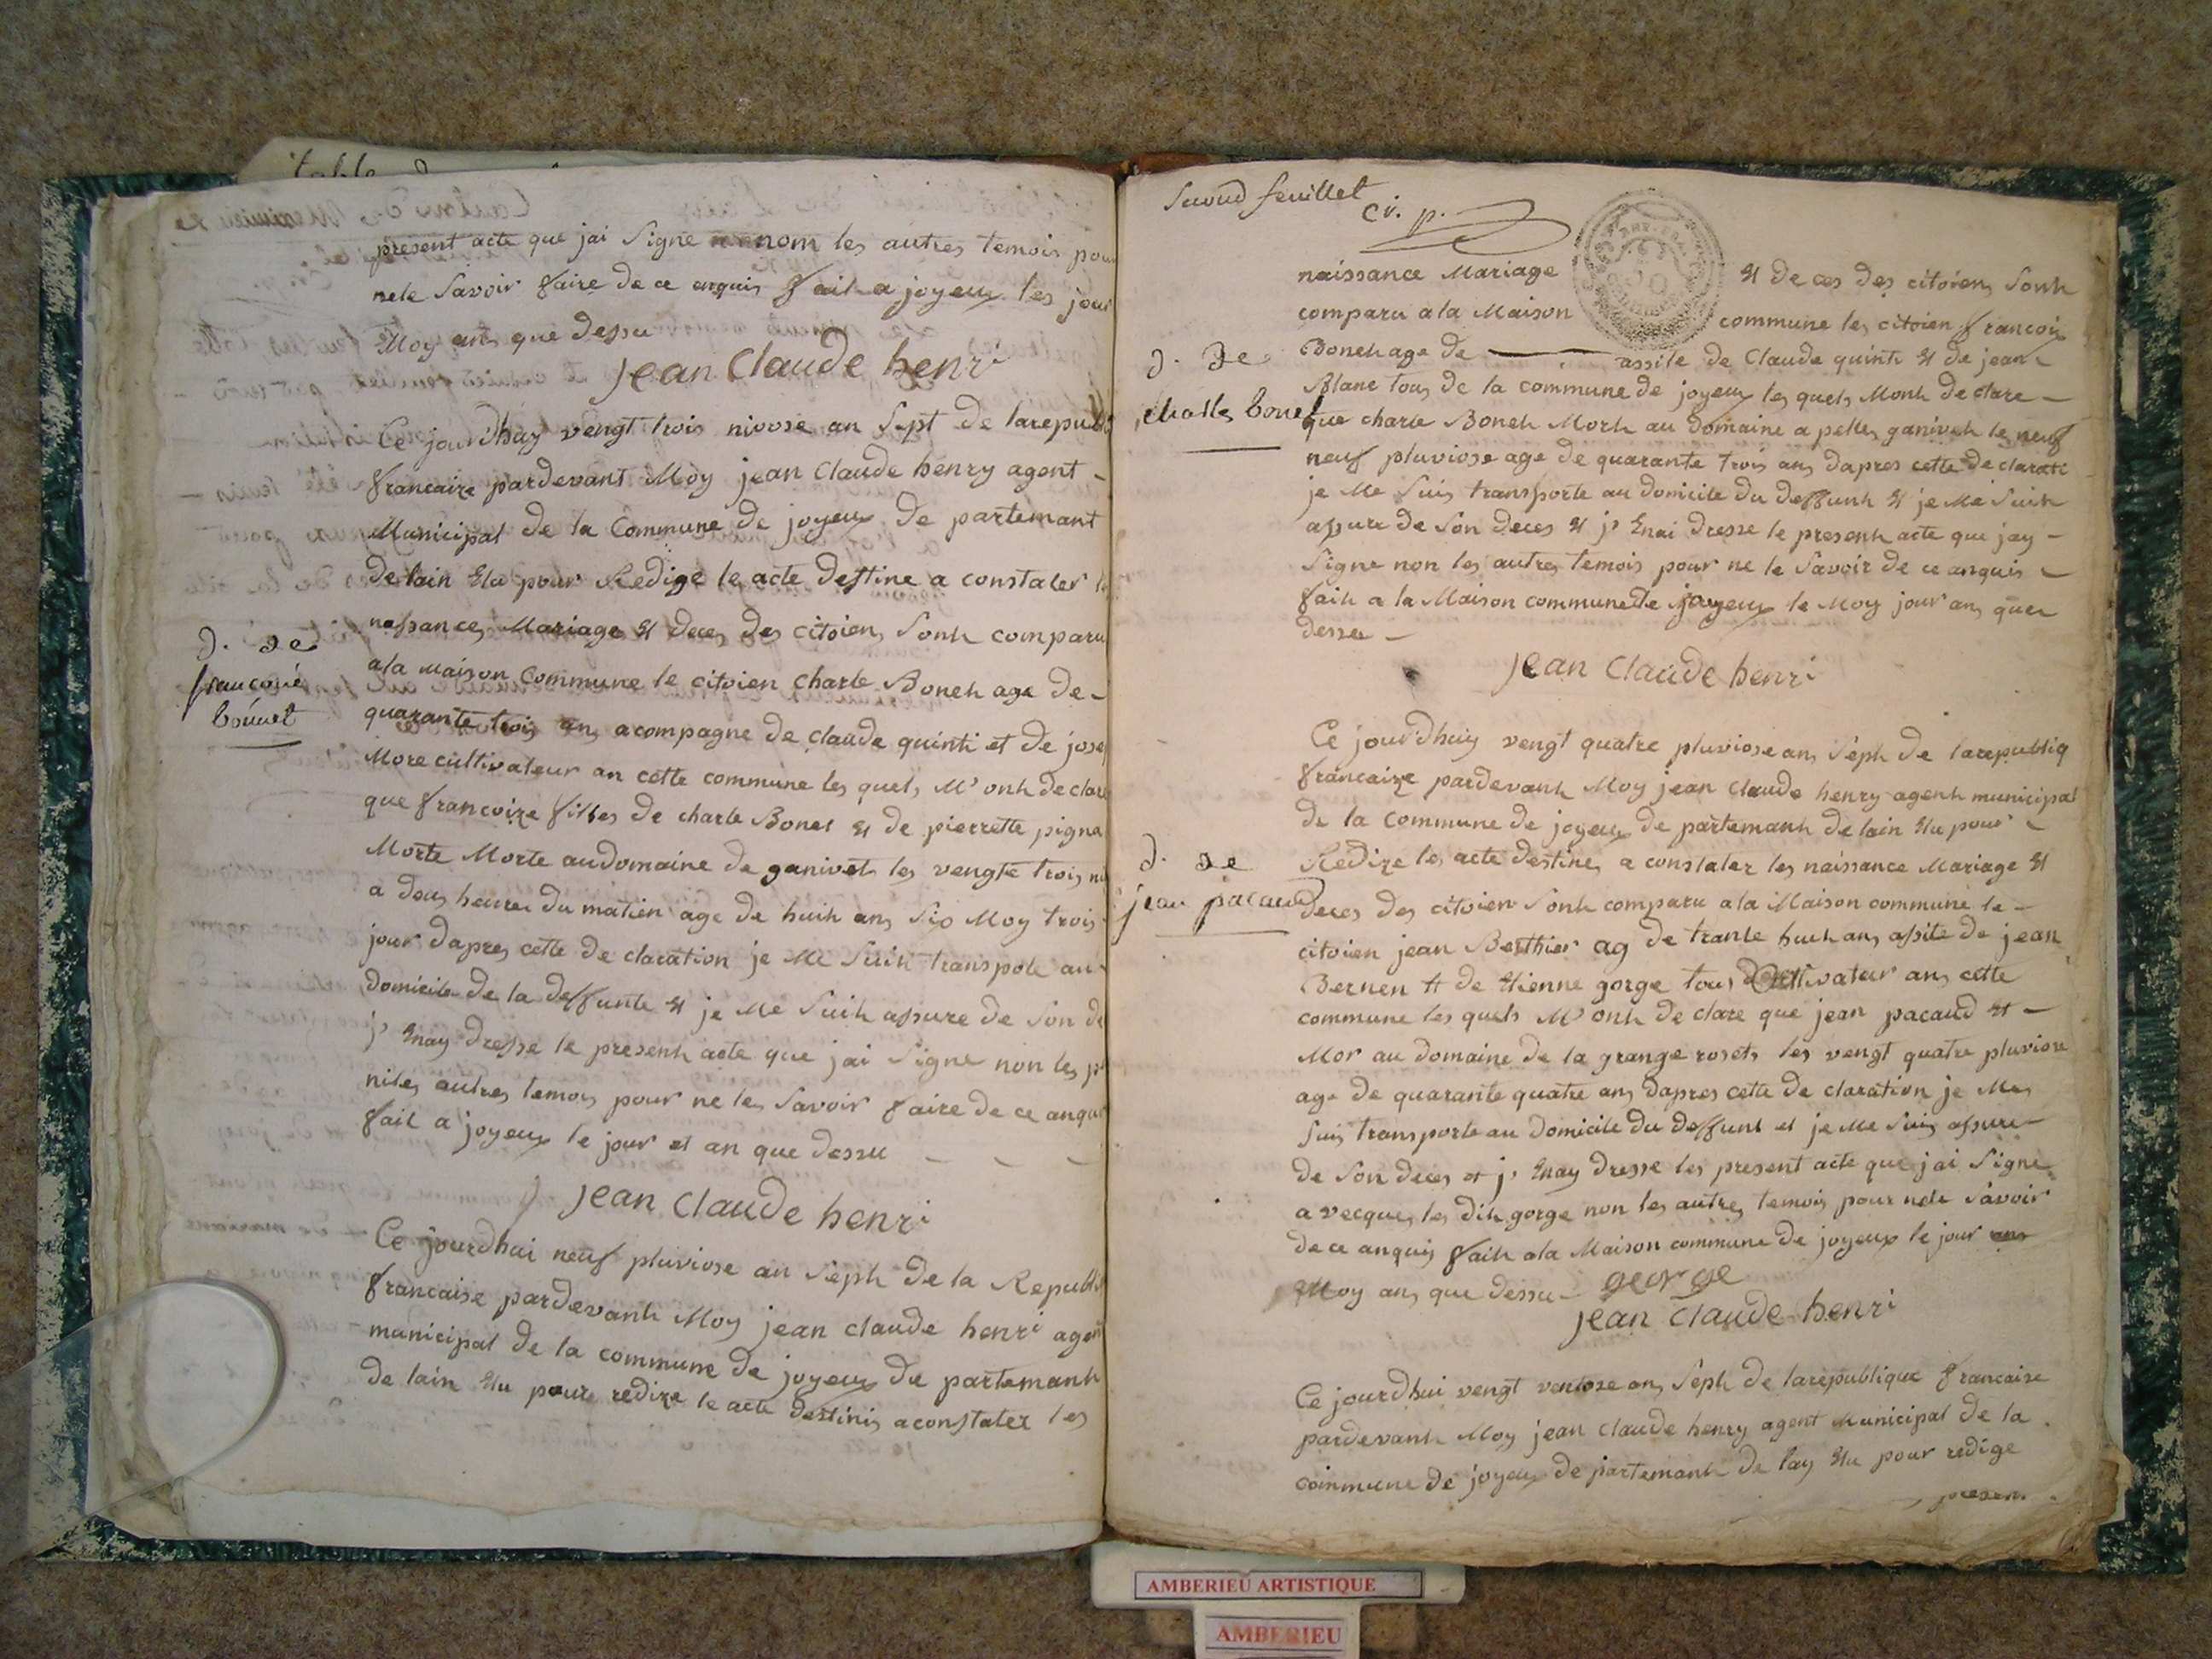 present acte que jai Signe nom les autres temois pour
nele Savoir faire de ce anquis fait a joyeux les jour
Moy ans que dessu
jean Claude henri
Ce jourdhuy vengt trois nivose an Sept de larepubli
francaize pardevant Moy jean claude henry agent -
Municipal de la Commune de joyeux de partemant
de lain Elu pour Redige le acte destine a constater
nassances Mariage Et deces des citoiens Sonh comparu
d. de
francoise
bonnet
ala Maison Commune le citoien charle Boneh age de -
quarante trois ans acompagne de claude quinti et de jose
More cultivateur an cette commune les quels M'onh de clare
que francoize filles de charle Bonet Et de pierrette pigna
Morte Morte audomaine de ganivet les vengte trois ni
a dous heures du matien age de huih ans Six Moy trois
jour dapres cette de claration je Me Suih transpote au
domicile de la deffunte Et je Me Suih assure de Son de
j' Enay dresse le presenh acte que jai Signe non les
niles autres temois pour ne les Savoir faire de ce anquis
fait a joyeux le jour et an que dessu - - -
jean Claude henri
Ce jourdhui neuf pluviose an Seph de la Republi
francaise pardevanh Moy jean claude henri agen
municipal de la commune de joyeux de partemanh
de lain Elu poure redize le acte destinis aconstater les
Second feuillet
naissance Mariage Et de ces des citoiens Sonh
comparu ala Maison commune les citoien francois
d. de
charle bonet
Boneh age de assite de Claude quinti Et de jean
Blanc tous de la commune de joyeux les quels Monh de clare -
que charle Boneh Morh au domaine a pelles ganiveh le neuf
neuf pluviose age de quarante trois ans dapres cette de clarati
je Me Suis transporte au domicile du deffunh Et je Me Suih
assure de Son deces Et j' Enai dresse le presenh acte que jay -
Signe non les autres temois pour ne le Savoir de ce anquis -
faih a la Maison commune de joyeux le Moy jour ans que
dessu -
jean Claude henri
Ce jourdhuy vengt quatre pluviose ans Seph de larepubliq
francaize pardevanh Moy jean claude henry agenh municipal
de la commune de joyeux de partemanh de lain Elu pour -
d. de
jean pacaud
Redize les acte destines a constater les naissance Mariage Et
deces des citoien Sonh comparu ala Maison commune le -
citoien jean Berthier ag de trante huih ans assite de jean
Bernen Et de Etienne gorge tous cultivateur ans cette
commune les quels M'onh de clare que jean pacaud Et -
Mor au domaine de la grange rosets les vengt quatre pluviose
age de quarante quatre ans dapres cete de claration je Mes
Suis transporte au domicile du deffunt et je Me Suis assure -
de Son deces et j' Enay dresse les present acte que jai Signe
a vecques les dih gorge non les autres temois pour nele Savoir
de ce anquis faih ala Maison commune de joyeux le jour ans
Moy ans que dessu - george
jean Claude henri
Ce jourdhui vengt ventose ans Seph de larepublique francaise
pardevanh Moy jean claude henry agent Municipal de la
commune de joyeux de partemanh de lay Elu pour redige
presen
AMBERIEU ARTISTIQUE
AMBERIEU